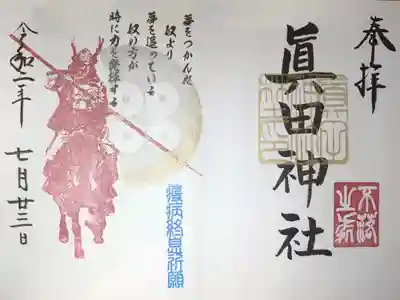 奉拝
眞田神社
不落
之城
夢をつかん奴
奴より
夢を追っている
奴の方が
時に力を発揮する
疫病終息祈願
令和二年
七月廿三日